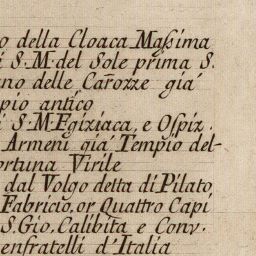 o della Cloaca Maſsima
i S. M. del Sole prima S.
ano delle Carozze giá
pio antico
i S. M. Egiziaca, e Oſpiz.
Armeni giá Tempio del-
ortuna Virile
dal Volgo detta di Pilato
Fabricio, or Quattro Capi
S. Gio. Calibita e Conv.
enfratelli d'Italia